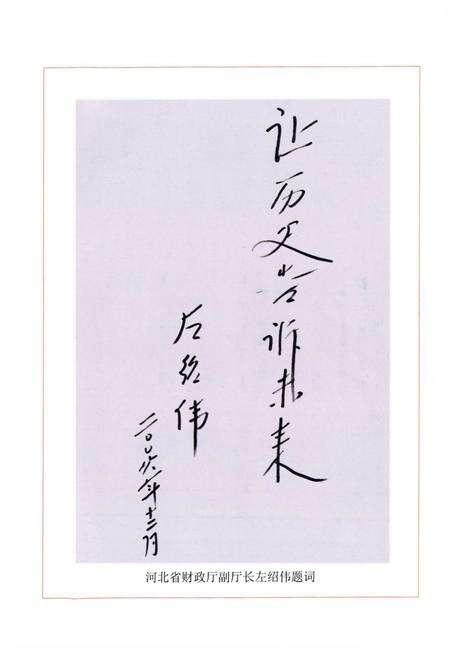 让历史告诉未来
左绍伟
二〇〇六年十二月
河北省财政厅副厅长左绍伟题词